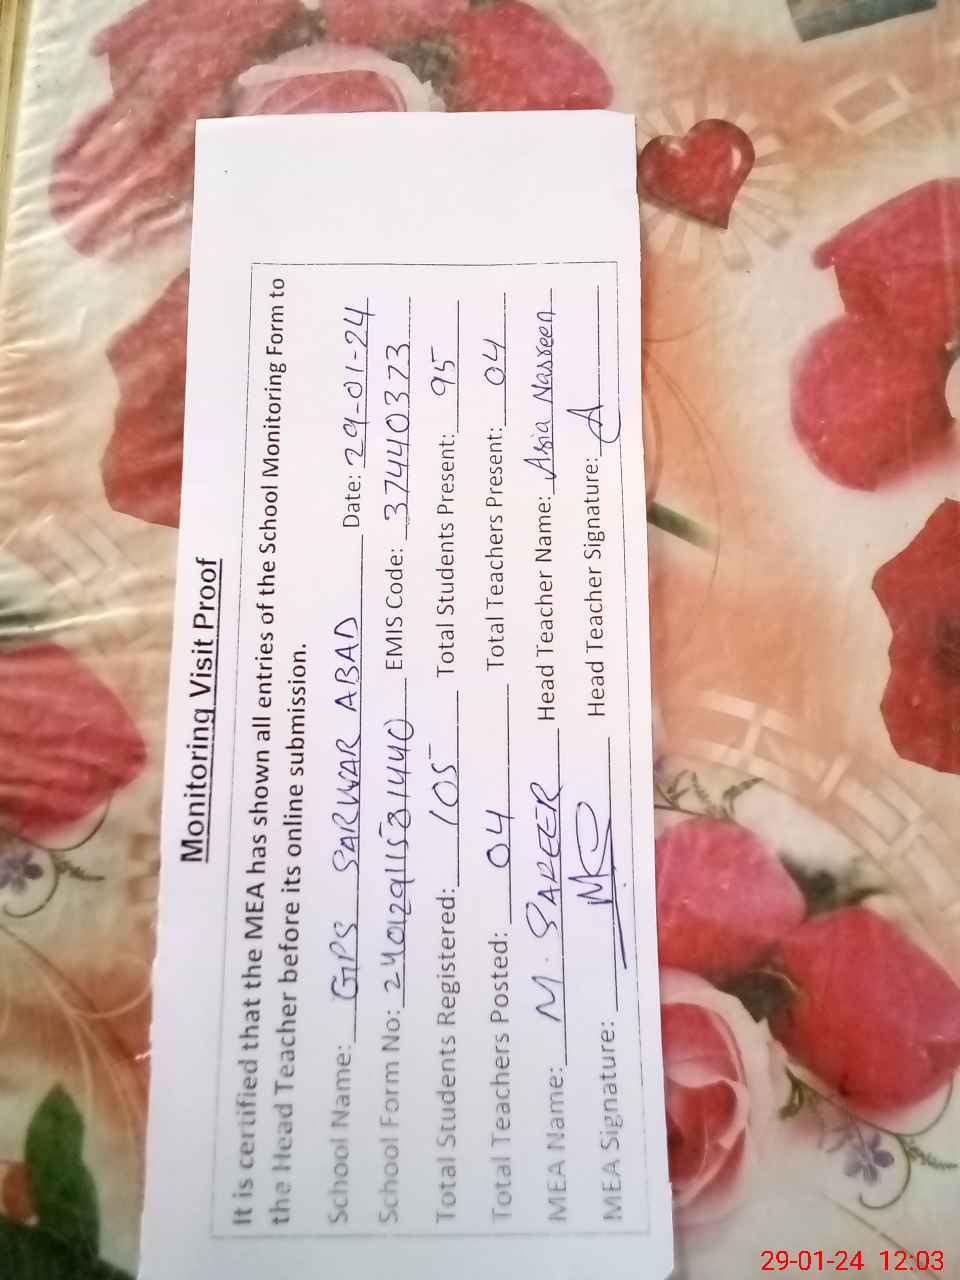 Monitoring Visit Proof
It is certified that the MEA has shown all entries of the School Monitoring Form to
the Head Teacher before its online submission.
School Name: GPS SARWAR ABAD Date: 29-01-24
School Form No: 24012911531440 EMIS Code: 37440373
Total Students Registered: 105 Total Students Present: 95
Total Teachers Posted: 04 Total Teachers Present: 04
MEA Name: M. SAPEER Head Teacher Name: Asia Nasreen
MEA Signature: Head Teacher Signature: A
29-01-24 12:03